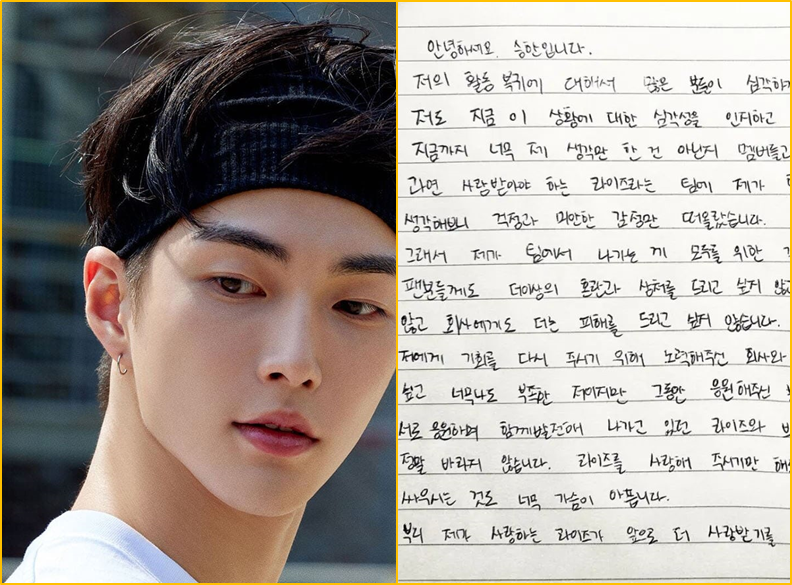 안녕하세요. 승한입니다.
저의 활동 복귀에 대해서 많은 분들이 심각하게
저도 지금 이 상황에 대한 심각성을 인지하고
지금까지 너무 제 생각만 한 건 아닌지 멤버들과
과연 사랑받아야 하는 라이즈라는 팀에 제가
생각해보니 걱정과 미안한 감정만 떠올랐습니다.
그래서 제가 팀에서 나가는 게 모두를 위한
팬분들께도 더이상의 혼란과 상처를 드리고 싶지 않고
않고 회사에게도 더는 피해를 드리고 싶지 않습니다.
저에게 기회를 다시 주시기 위해 노력해주신 회사와
싶고 너무나도 부족한 저이지만 그동안 응원해주신
서로 응원하며 함께 발전해 나가고 있던 라이즈와
정말 바라지 않습니다. 라이즈를 사랑해 주시기만
싸우시는 것도 너무 가슴이 아픕니다.
부디 제가 사랑하는 라이즈가 앞으로 더 사랑받기를